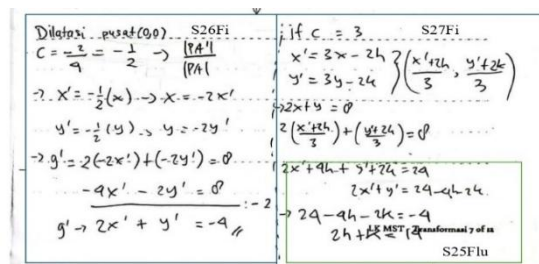 Dilatasi pusat (0,0) S26Fi
C = -2/4 = -1/2 → |PA'|/|PA|
→ x' = -1/2(x) → x = -2x'
y' = -1/2(y) → y = -2y'
→ g' = 2(-2x') + (-2y') = 8
-4x' - 2y' = 8
: -2
g' → 2x' + y' = -4 //
if c = 3 S27Fi
x' = 3x - 2h
y' = 3y - 2k } (x'+2h/3, y'+2k/3)
→ 2x + y = 8
2(x'+2h/3) + (y'+2k/3) = 8
2x' + 4h + y' + 2k = 24
2x' + y' = 24 - 4h - 2k
→ 24 - 4h - 2k = -4
2h + k = 14
LK MST Transformasi 7 of 12
S25Flu